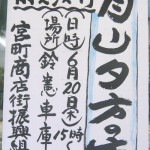 月山夕方
日時 6月20日(木)
15時
場所 鈴憲車庫
宮町商店街振興組